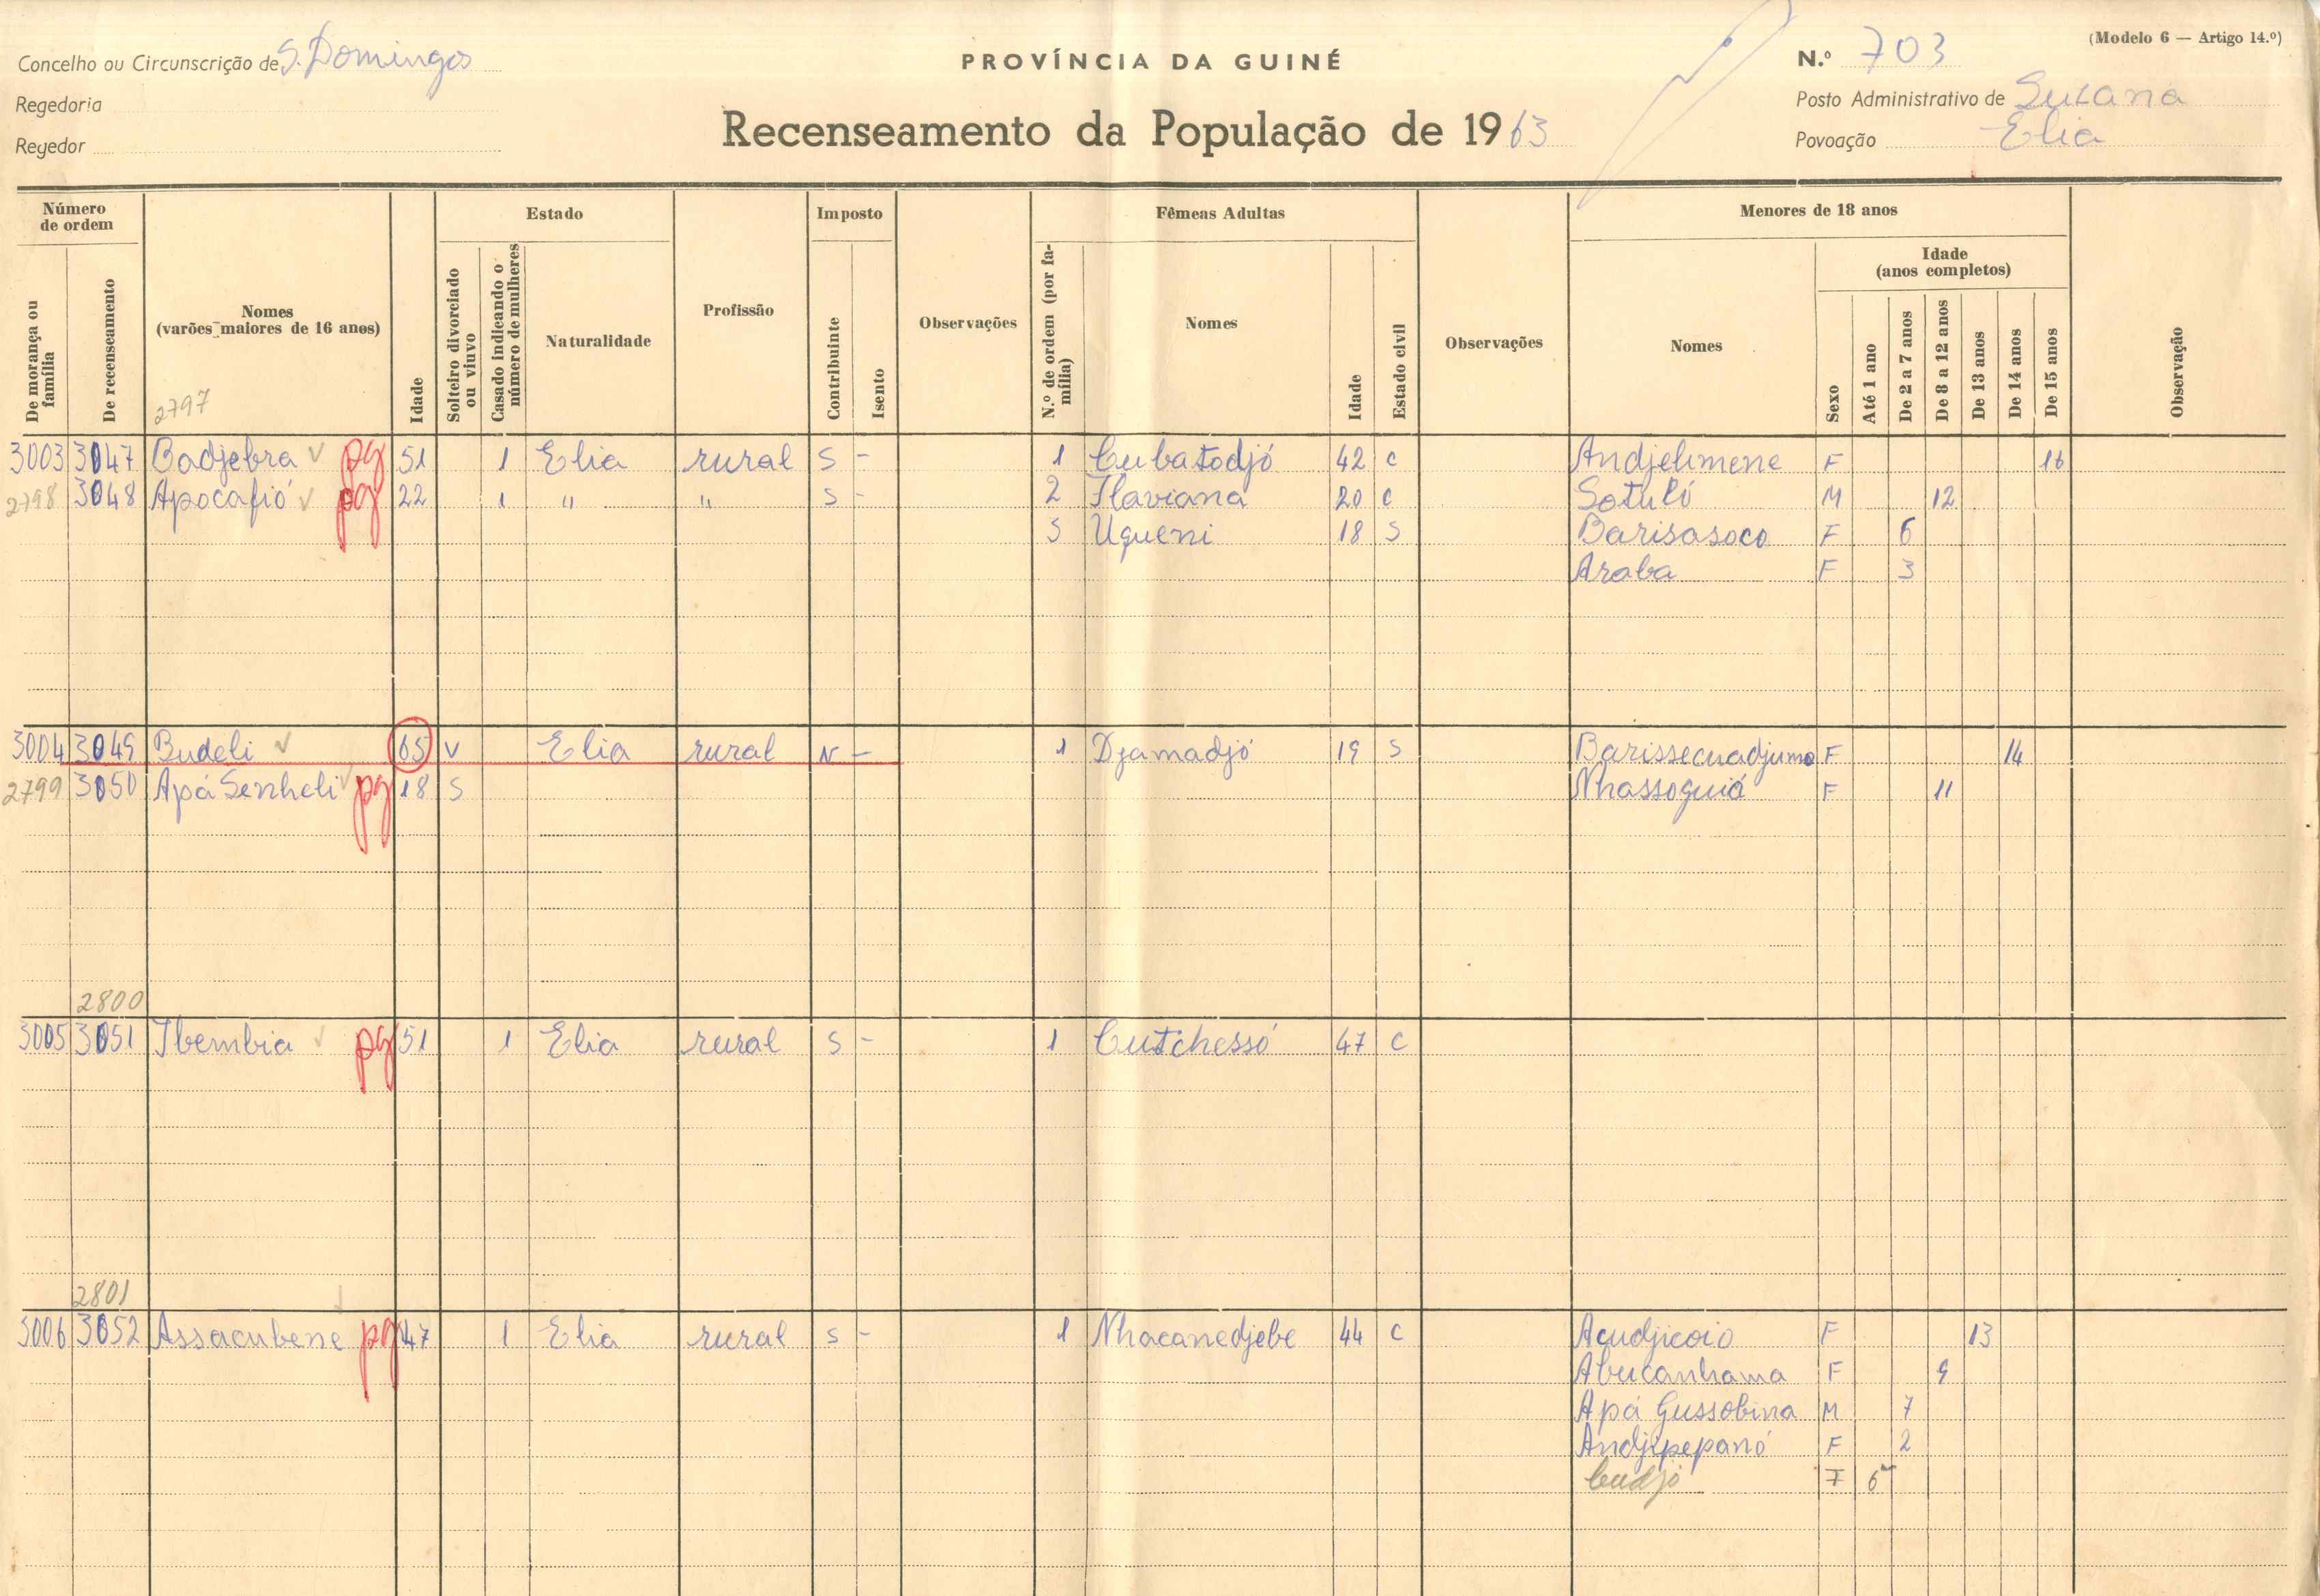 Concelho ou Circunscrição de S. Domingos
PROVÍNCIA DA GUINÉ
N.º 703
(Modelo 6 — Artigo 14.º)
Regedoria
Regedor
Recenseamento da População de 1963
Posto Administrativo de Suzana
Povoação Elia
Número de ordem
De morança ou família
De recenseamento
Nomes (varões maiores de 16 anos)
2797
Idade
Estado
Solteiro divorciado ou viuvo
Casado indicando o número de mulheres
Naturalidade
Profissão
Imposto
Contribuinte
Isento
Observações
Fêmeas Adultas
N.º de ordem (por família)
Nomes
Idade
Estado civil
Observações
Menores de 18 anos
Nomes
Sexo
Idade (anos completos)
Até 1 ano
De 2 a 7 anos
De 8 a 12 anos
De 13 anos
De 14 anos
De 15 anos
Observação
3003 3047 Badjebra pg 51 1 Elia rural S - 1 Cubatodjó 42 C Andjelimene F 16
2798 3048 Apocafió pg 22 1 " " S - 2 Flaviana 20 C Sotuló M 12
3 Uqueni 18 S Barisasoco F 6
Araba F 3
3004 3049 Budeli 65 V Elia rural N - 1 Djamadjó 19 S Barissecuadjumo F 14
2799 3050 Apá Senheli pg 18 S Nhassoguió F 11
2800
3005 3051 Ibembia pg 51 1 Elia rural S - 1 Cutchessó 47 C
2801
3006 3052 Assacubene pg 47 1 Elia rural S - 1 Nhacanedjebe 44 C Acudjicoio F 13
Abucanhama F 9
Apá Gussobina M 7
Andjepepanó F 2
Cudjó F